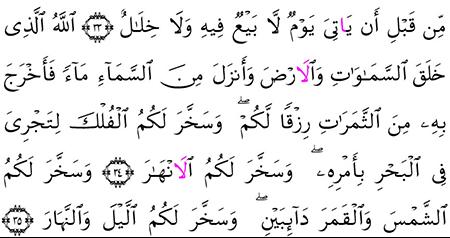 مِّن قَبْلِ أَن يَاتِىَ يَوْمٌ لَّا بَيْعٌ فِيهِ وَلَا خِلَٰلٌ ۝٣٣ اَللَّهُ اُلَّذِى
خَلَقَ اَلسَّمَٰوَٰتِ وَالَارْضَ وَأَنزَلَ مِنَ اَلسَّمَآءِ مَآءً فَأَخْرَجَ
بِهِۦ مِنَ اَلثَّمَرَٰتِ رِزْقًا لَّكُمْ ۖ وَسَخَّرَ لَكُمُ اُلْفُلْكَ لِتَجْرِىَ
فِى اِلْبَحْرِ بِأَمْرِهِۦ ۖ وَسَخَّرَ لَكُمُ اُلَانْهَٰرَ ۝٣٤ وَسَخَّرَ لَكُمُ
اُلشَّمْسَ وَالْقَمَرَ دَآئِبَيْنِ ۖ وَسَخَّرَ لَكُمُ اُلَّيْلَ وَالنَّهَارَ ۝٣٥